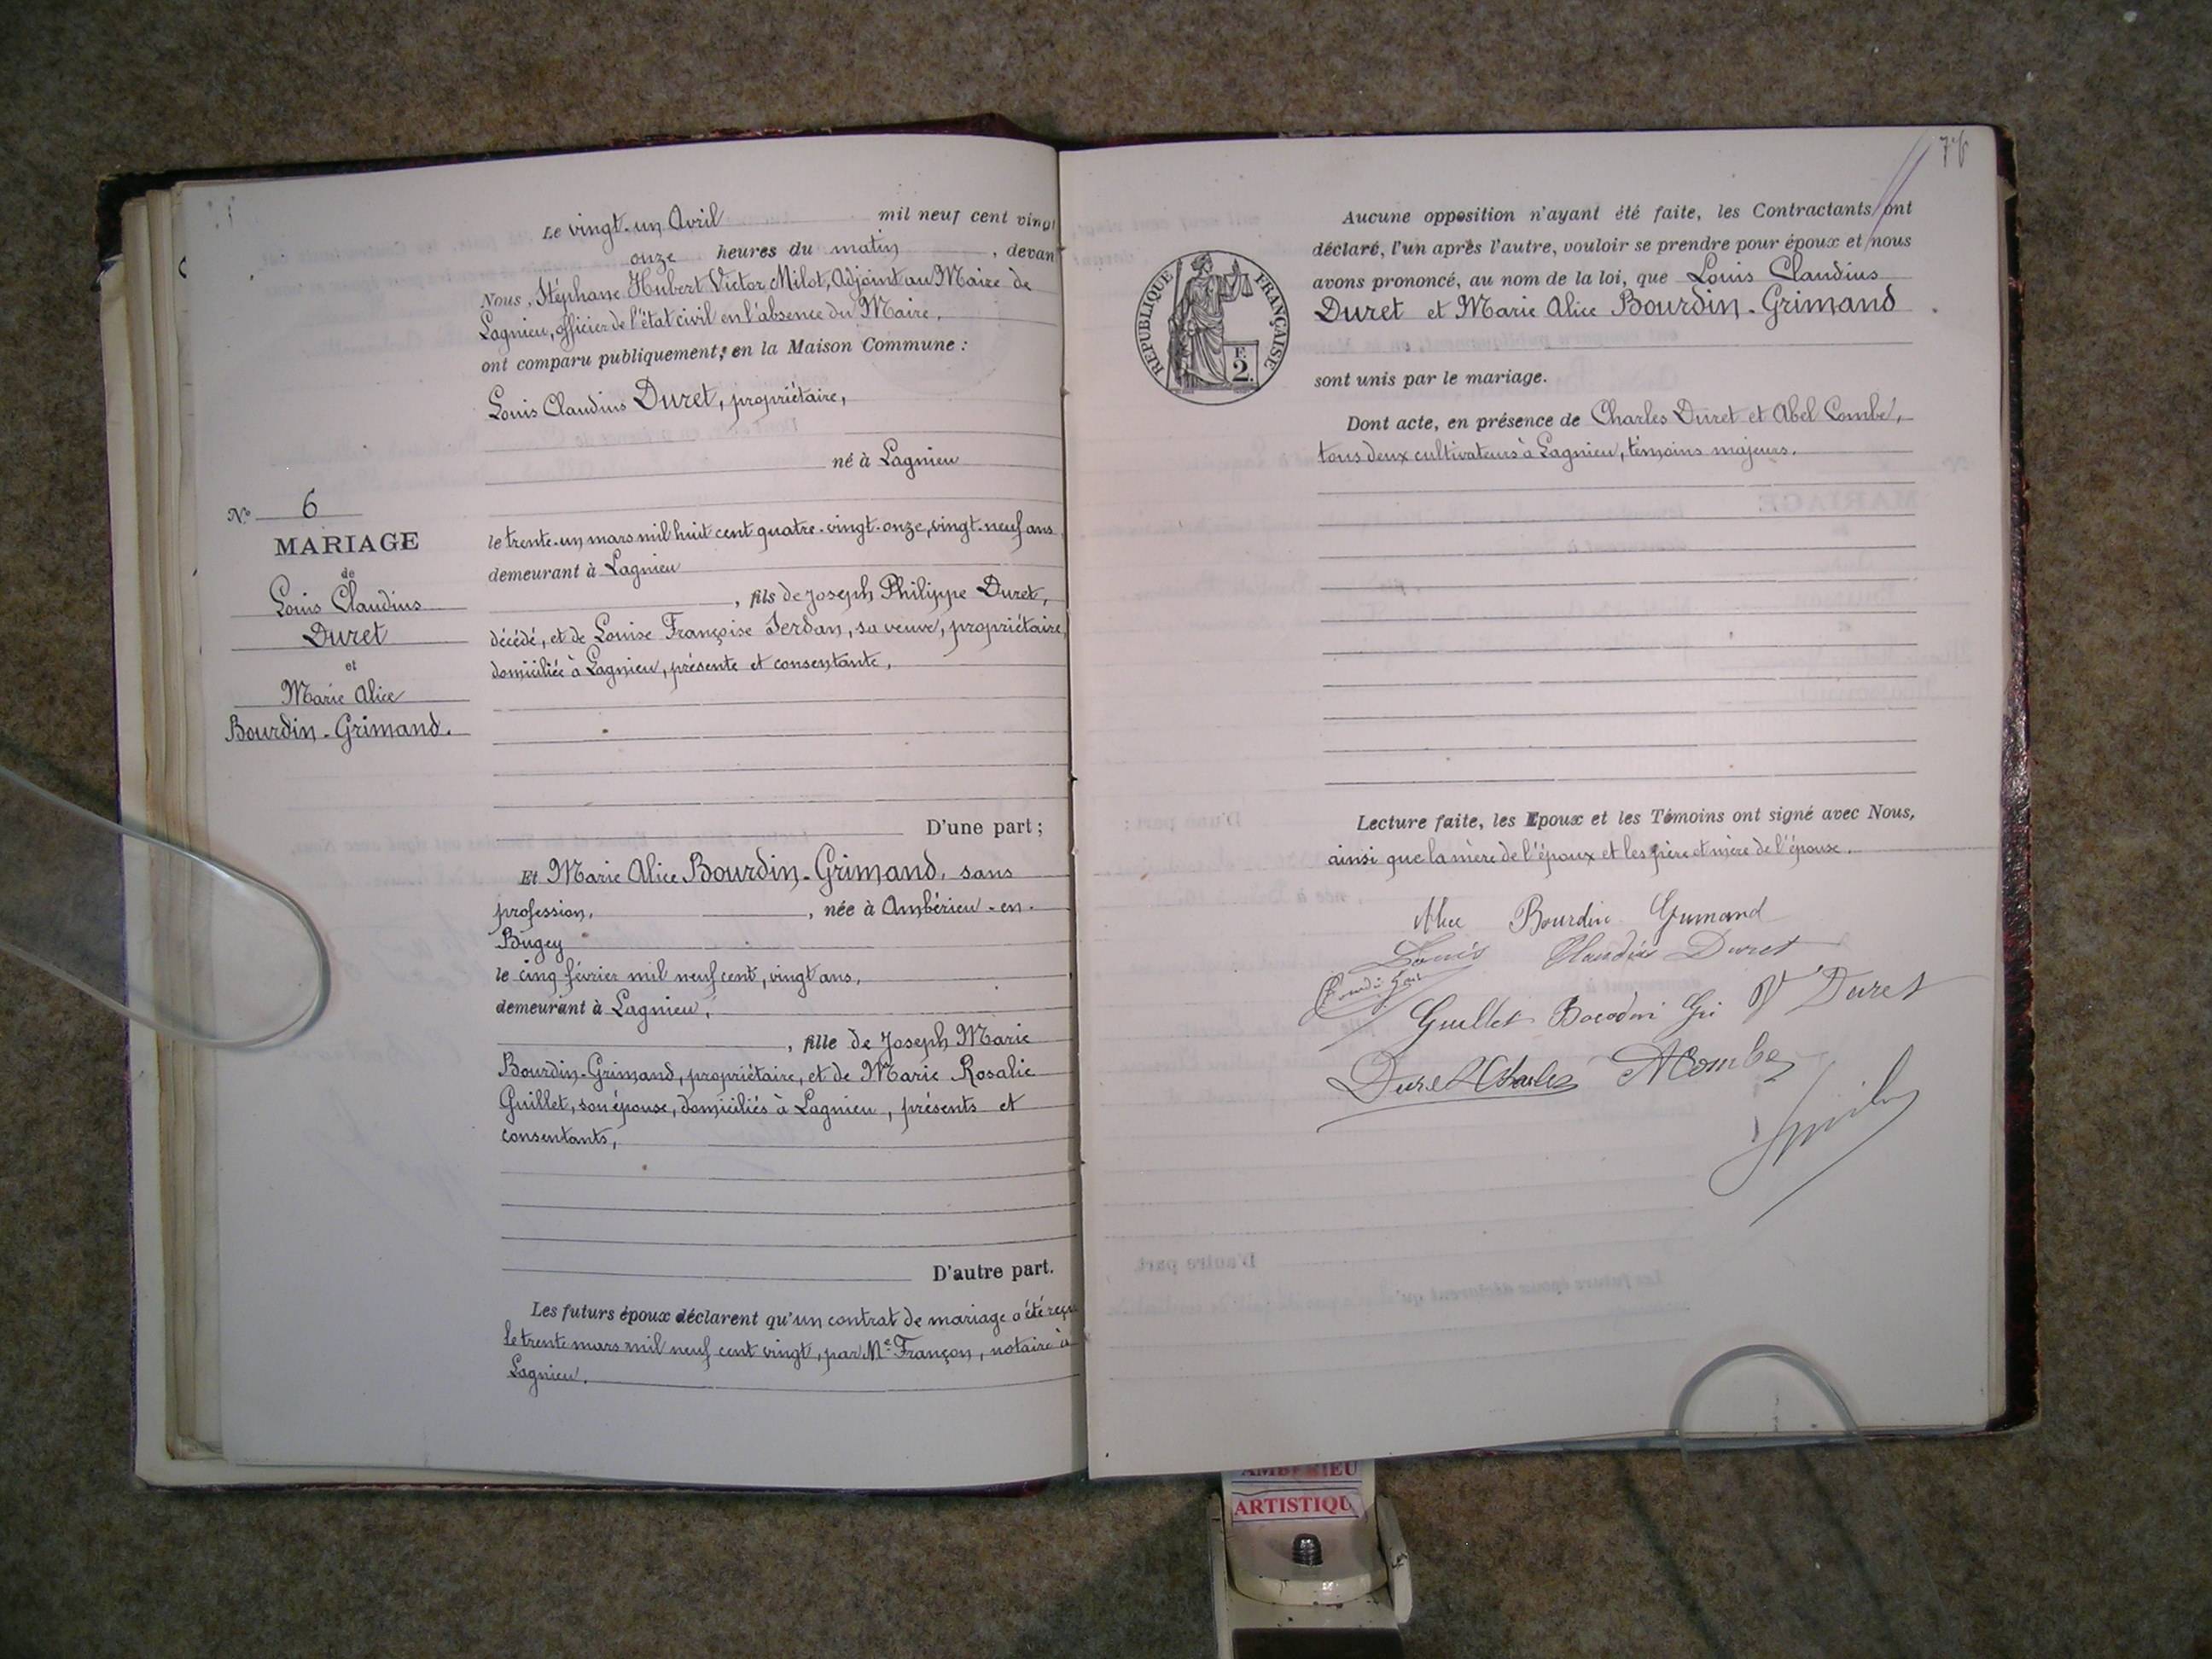 Le vingt-un Avril mil neuf cent vingt
onze heures du matin, devan
Nous, Stéphane Hubert Victor Milot, Adjoint au Maire de
Lagnieu, officier de l'état civil en l'absence du Maire,
ont comparu publiquement, en la Maison Commune :
Louis Claudius Duret, propriétaire,
né à Lagnieu
le trente-un mars mil huit cent quatre-vingt-onze, vingt-neuf ans,
demeurant à Lagnieu
, fils de Joseph Philippe Duret,
décédé, et de Louise Françoise Serdan, sa veuve, propriétaire,
domiciliée à Lagnieu, présente et consentante,
D'une part ;
Et Marie Alice Bourdin-Grimand, sans
profession, , née à Ambérieu-en-
Bugey
le cinq février mil neuf cent, vingt ans,
demeurant à Lagnieu,
, fille de Joseph Marie
Bourdin-Grimand, propriétaire, et de Marie Rosalie
Guillet, son épouse, domiciliés à Lagnieu, présents et
consentants,
D'autre part.
Les futurs époux déclarent qu'un contrat de mariage a été reçu
le trente mars mil neuf cent vingt, par Me Françon, notaire à
Lagnieu.
N° 6
MARIAGE
de
Louis Claudius
Duret
et
Marie Alice
Bourdin-Grimand.
RÉPUBLIQUE FRANÇAISE
F.
2.
Aucune opposition n'ayant été faite, les Contractants ont
déclaré, l'un après l'autre, vouloir se prendre pour époux et nous
avons prononcé, au nom de la loi, que Louis Claudius
Duret et Marie Alice Bourdin-Grimand
sont unis par le mariage.
Dont acte, en présence de Charles Duret et Abel Combe,
tous deux cultivateurs à Lagnieu, témoins majeurs.
Lecture faite, les Epoux et les Témoins ont signé avec Nous,
ainsi que la mère de l'époux et les père et mère de l'épouse.
Alice Bourdin Grimand
Louis Claudius Duret
Guillet Bourdin Gri Vve Duret
Duret Charles A Combe
AMBERIEU
ARTISTIQU